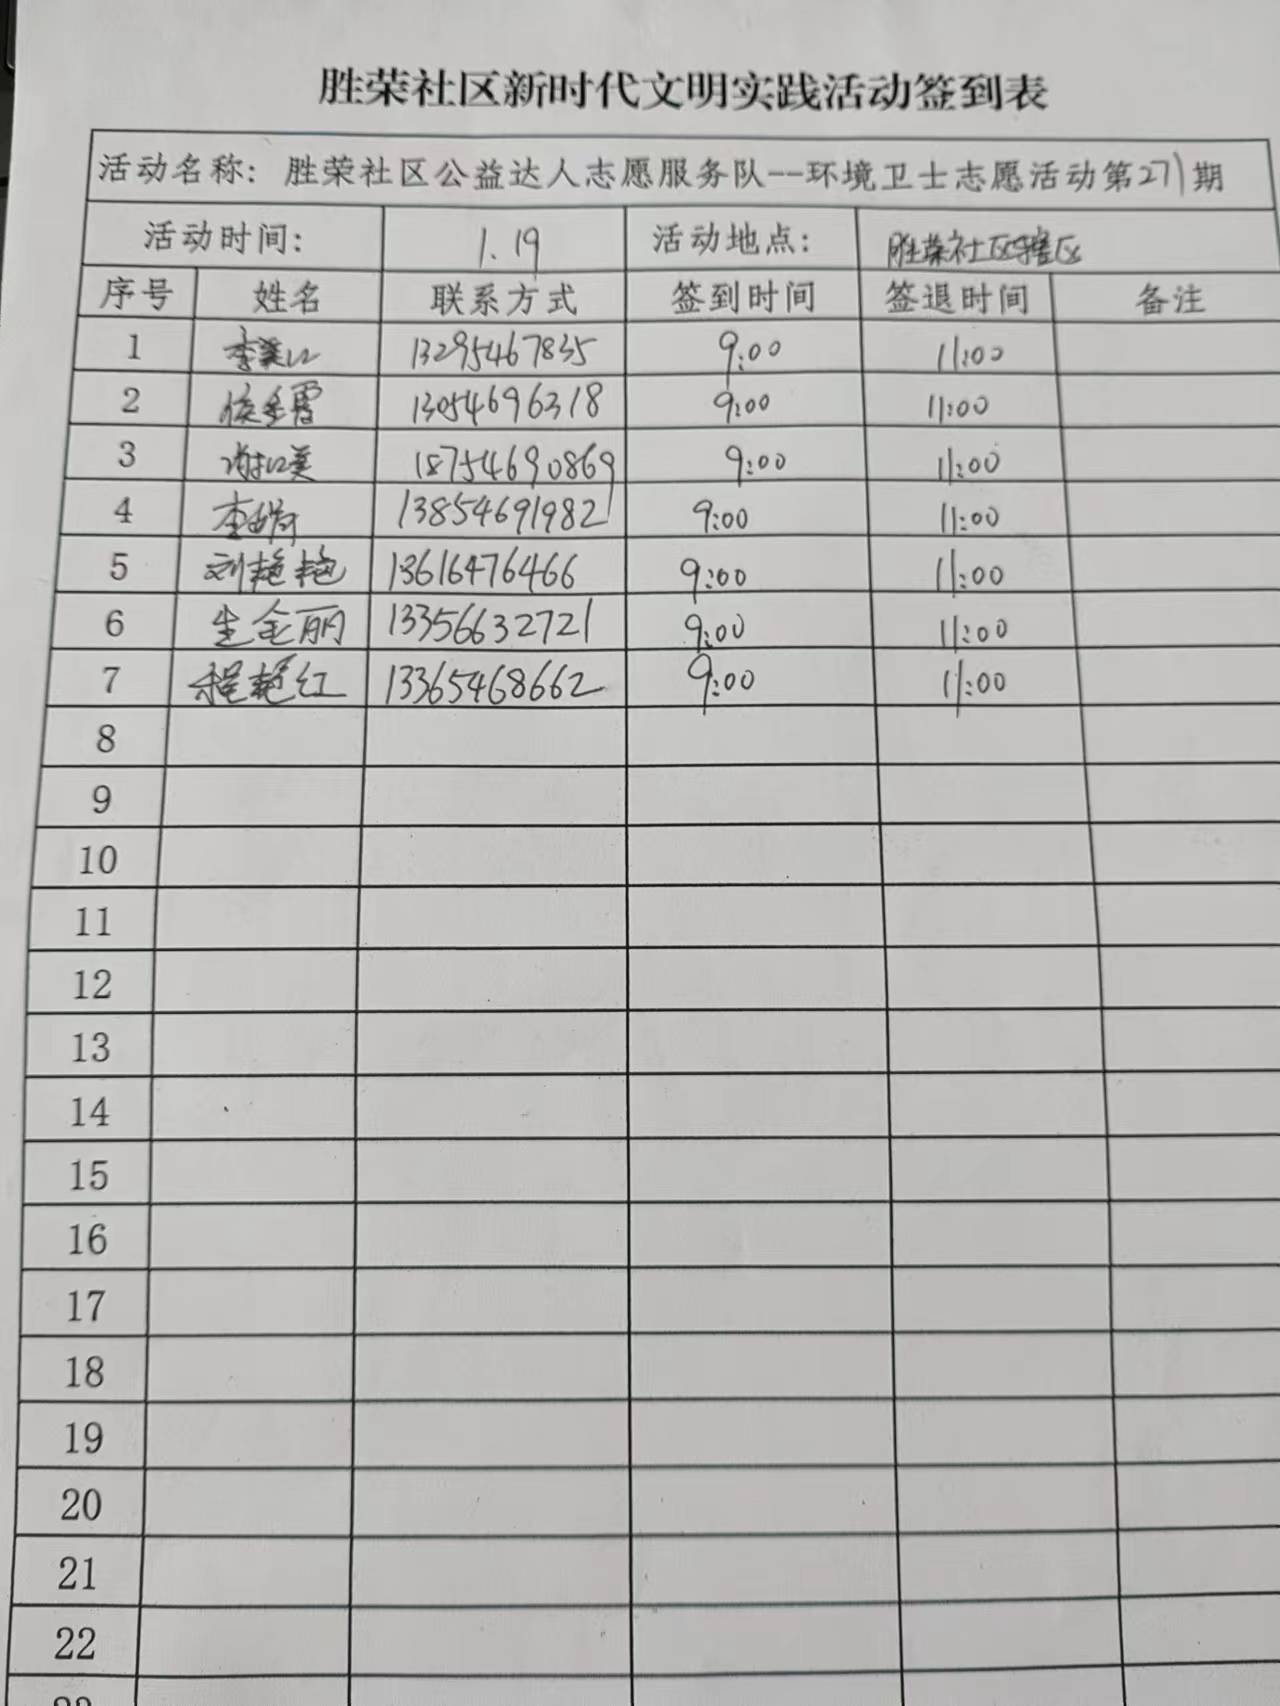 胜荣社区新时代文明实践活动签到表
活动名称：胜荣社区公益达人志愿服务队--环境卫士志愿活动第271期
活动时间： 1.19 活动地点： 胜荣社区辖区
序号 姓名 联系方式 签到时间 签退时间 备注
1 李 13295467835 9:00 11:00
2 13054696318 9:00 11:00
3 18754690869 9:00 11:00
4 李 13854691982 9:00 11:00
5 刘艳艳 13616476466 9:00 11:00
6 生金丽 13356632721 9:00 11:00
7 程艳红 13365468662 9:00 11:00
8
9
10
11
12
13
14
15
16
17
18
19
20
21
22